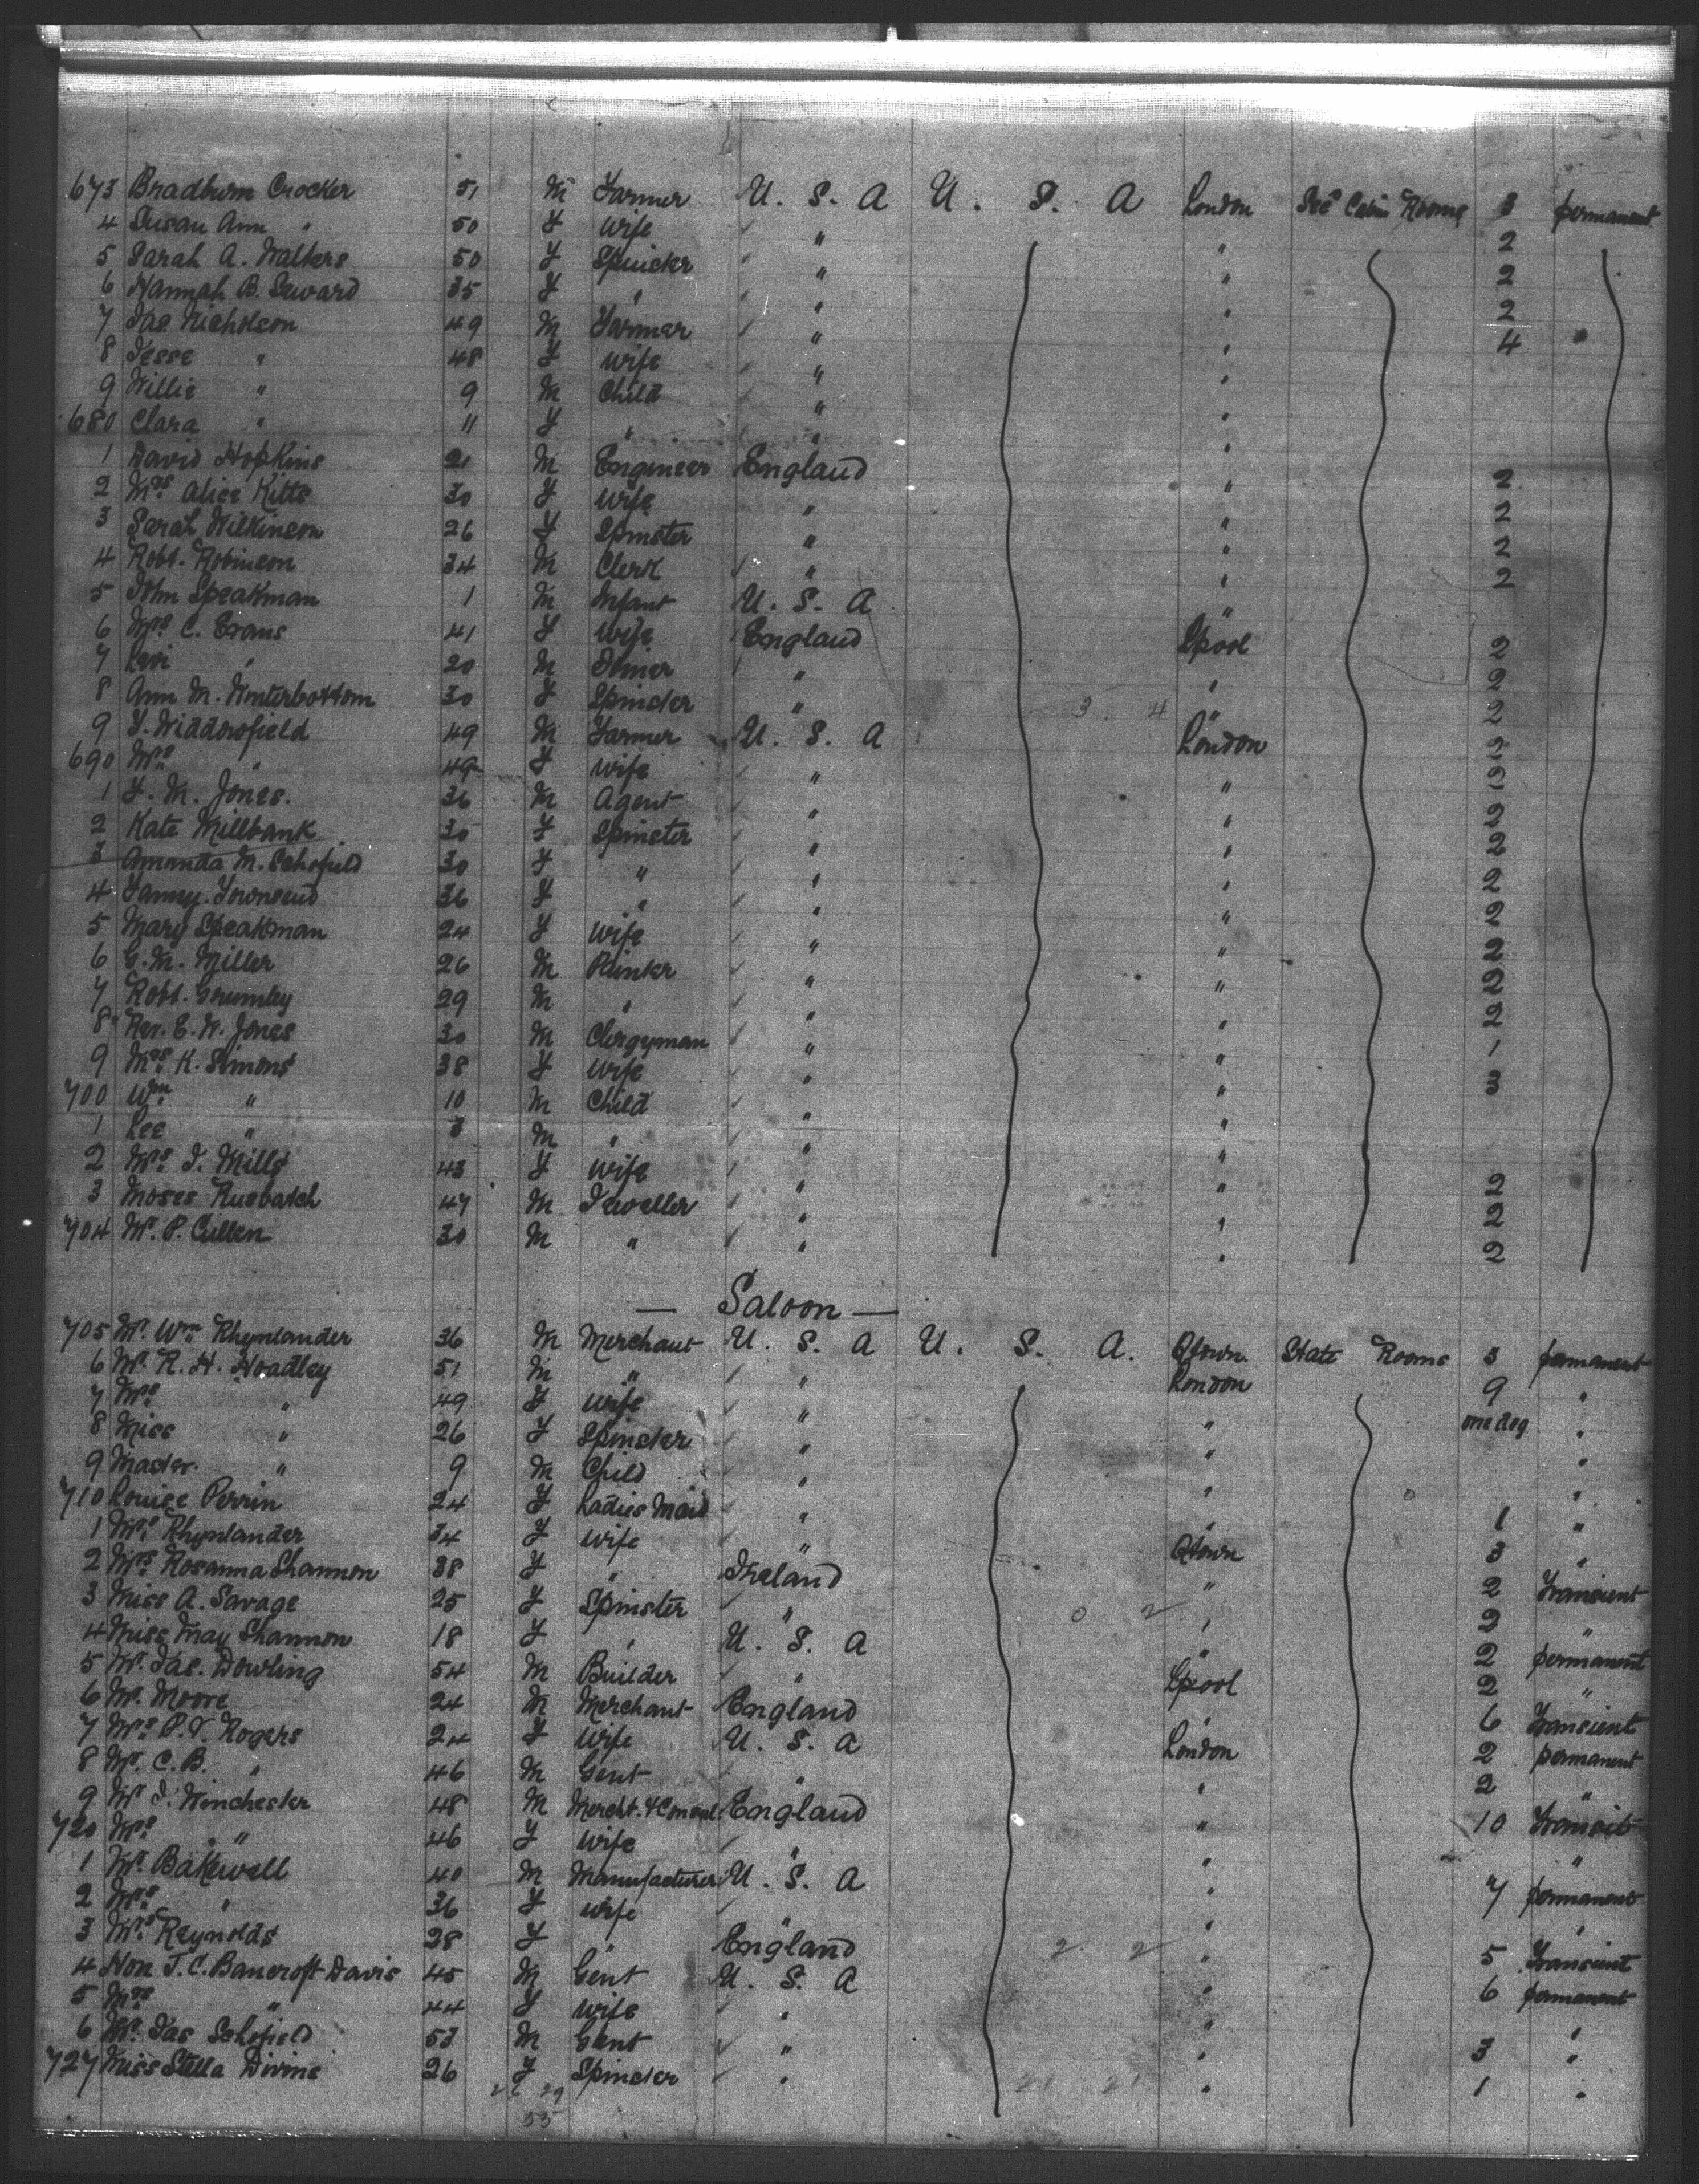 673 Bradburn Crocker 51 M Farmer U. S. A U. S. A London Sec Cabin Rooms 3 permanent
4 Susan Ann " 50 F Wife " " 2
5 Sarah A. Walters 50 F Spinster " " 2
6 Hannah B. Seward 35 F " " " 2
7 Jas Nicholson 49 M Farmer " " 4 "
8 Jesse " 48 F Wife " "
9 Willie " 9 M Child " "
680 Clara " 11 F " " "
1 David Hopkins 21 M Engineer England " 2
2 Mrs Alice Kitts 30 F Wife " " 2
3 Sarah Wilkinson 26 F Spinster " " 2
4 Robt. Robinson 34 M Clerk " " 2
5 John Speakman 1 M Infant U. S. A "
6 Mrs C. Evans 41 F Wife England Lpool 2
7 Levi " 20 M Joiner " " 2
8 Ann M. Winterbottom 30 F Spinster " 3. 4 " 2
9 F. Widdowfield 49 M Farmer U. S. A London 2
690 Mrs " 49 F Wife " 2
1 F. M. Jones. 36 M Agent " " 2
2 Kate Millbank 30 F Spinster " " 2
3 Amanda M. Schofield 30 F " " " 2
4 Fanny Townsend 36 F " " " 2
5 Mary Speakman 24 F Wife " " 2
6 G. M. Miller 26 M Printer " " 2
7 Robt. Grumley 29 M " " " 2
8 Rev. E. W. Jones 30 M Clergyman " " 1
9 Mrs K. Simons 38 F Wife " " 3
700 Wm " 10 M Child " "
1 Lee " 3 M " " "
2 Mrs J. Mills 43 F Wife " " 2
3 Moses Rusbatch 47 M Jeweller " " 2
704 Mr. P. Cullen 30 M " " " 2
— Saloon —
705 Mr. Wm Rhynlander 36 M Merchant U. S. A U. S. A. Qtown. State Rooms 3 permanent
6 Mr. R. H. Hoadley 51 M " " London 9 "
7 Mrs " 49 F Wife " " one dog "
8 Miss " 26 F Spinster " " "
9 Master. " 9 M Child " " "
710 Louise Perrin 24 F Ladies Maid " " 1 "
1 Mrs Rhynlander 34 F Wife " Qtown 3 "
2 Mrs Rosanna Shannon 38 F " Ireland " 2 Transient
3 Miss A. Savage 25 F Spinster " 0 2 " 2 "
4 Miss May Shannon 18 F " U. S. A " 2 permanent
5 Mr. Jas. Dowling 54 M Builder " Lpool 2 "
6 Mr. Moore 24 M Merchant England " 6 Transient
7 Mrs P. V. Rogers 24 F Wife U. S. A London 2 permanent
8 Mr. C. B. " 46 M Gent " " 2 "
9 Mr J. Winchester 48 M Mercht. & Consul England " 10 Transit
720 Mrs " 46 F Wife " " "
1 Mr. Bakewell 40 M Manufacturer U. S. A " 7 permanent
2 Mrs " 36 F Wife " " "
3 Mrs Reynolds 28 F " England 2 2 " 5 Transient
4 Hon J. C. Bancroft Davis 45 M Gent U. S. A " 6 permanent
5 Mrs " 44 F Wife " "
6 Mr. Jas Schofield 53 M Gent " " 3 "
727 Miss Stella Divine 26 F Spinster " 21 21 " 1 "
26 29
55